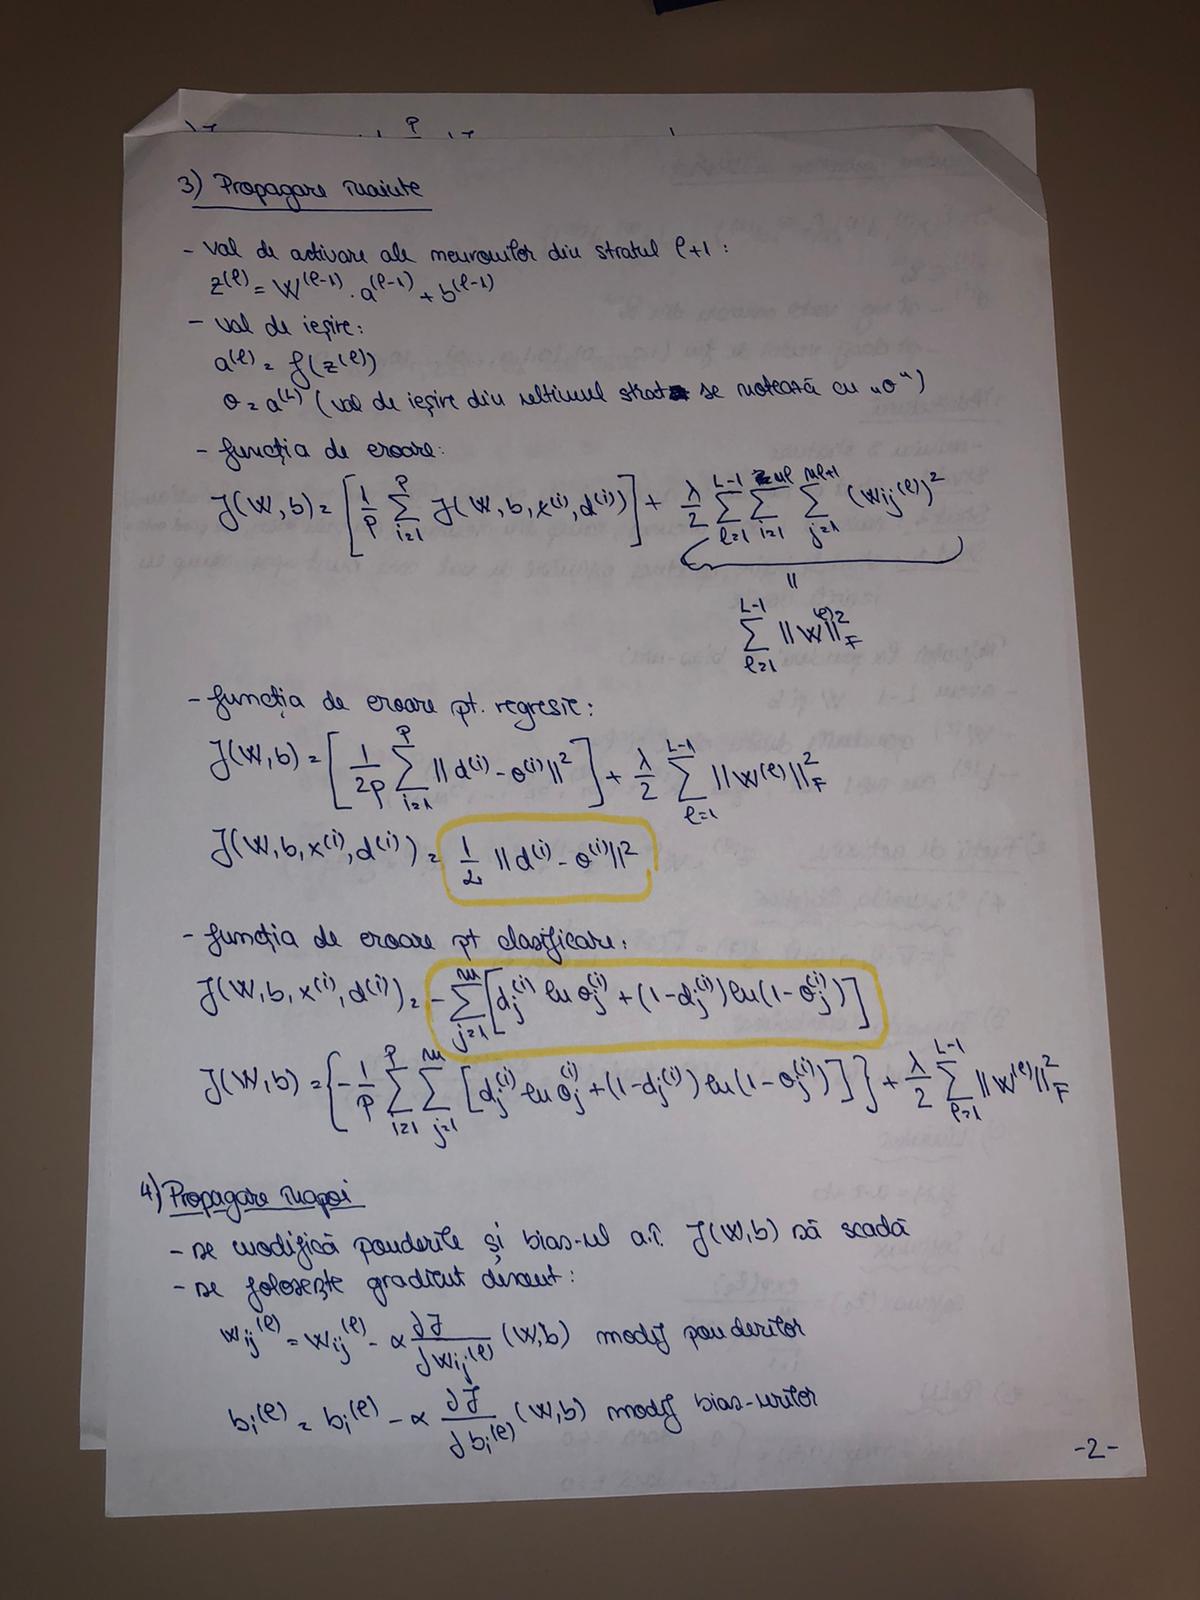 3) Propagare înainte
- val de activare ale neuronilor din stratul l+1 :
z^(l) = W^(l-1) · a^(l-1) + b^(l-1)
- val de ieșire:
a^(l) = f(z^(l))
o = a^(L) (val de ieșire din ultimul strat se notează cu „o")
- funcția de eroare:
J(W, b) = [1/p ∑_{i=1}^{p} J(W, b, x^(i), d^(i))] + λ/2 ∑_{l=1}^{L-1} ∑_{i=1}^{nl} ∑_{j=1}^{nl+1} (Wij^(l))^2
||
∑_{l=1}^{L-1} ||W^(l)||^2_F
- funcția de eroare pt. regresie:
J(W, b) = [1/2p ∑_{i=1}^{p} ||d^(i) - o^(i)||^2] + λ/2 ∑_{l=1}^{L-1} ||W^(l)||^2_F
J(W, b, x^(i), d^(i)) = 1/2 ||d^(i) - o^(i)||^2
- funcția de eroare pt clasificare:
J(W, b, x^(i), d^(i)) = -∑_{j=1}^{m} [dj^(i) ln oj^(i) + (1-dj^(i)) ln(1-oj^(i))]
J(W, b) = {-1/p ∑_{i=1}^{p} ∑_{j=1}^{m} [dj^(i) ln oj^(i) + (1-dj^(i)) ln(1-oj^(i))]} + λ/2 ∑_{l=1}^{L-1} ||W^(l)||^2_F
4) Propagare înapoi
- se modifică ponderile și bias-ul a.î. J(W, b) să scadă
- se folosește gradient descent:
wij^(l) = wij^(l) - α ∂J/∂wij^(l) (W, b) modif ponderilor
bi^(l) = bi^(l) - α ∂J/∂bi^(l) (W, b) modif bias-urilor
-2-